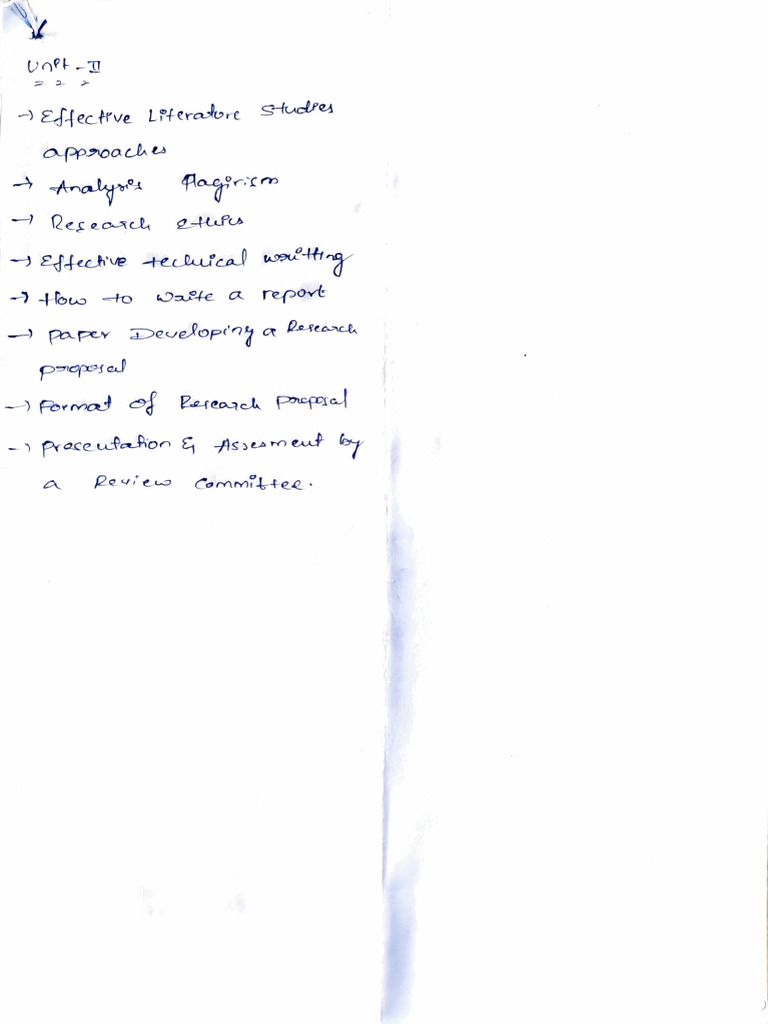 Unit - II
→ Effective Literature Studies
approaches
→ Analysis Plagirism
→ Research ethics
→ Effective technical writting
→ How to write a report
→ paper Developing a Research
proposal
→ Format of Research proposal
→ presentation & Assesment by
a Review Committee.